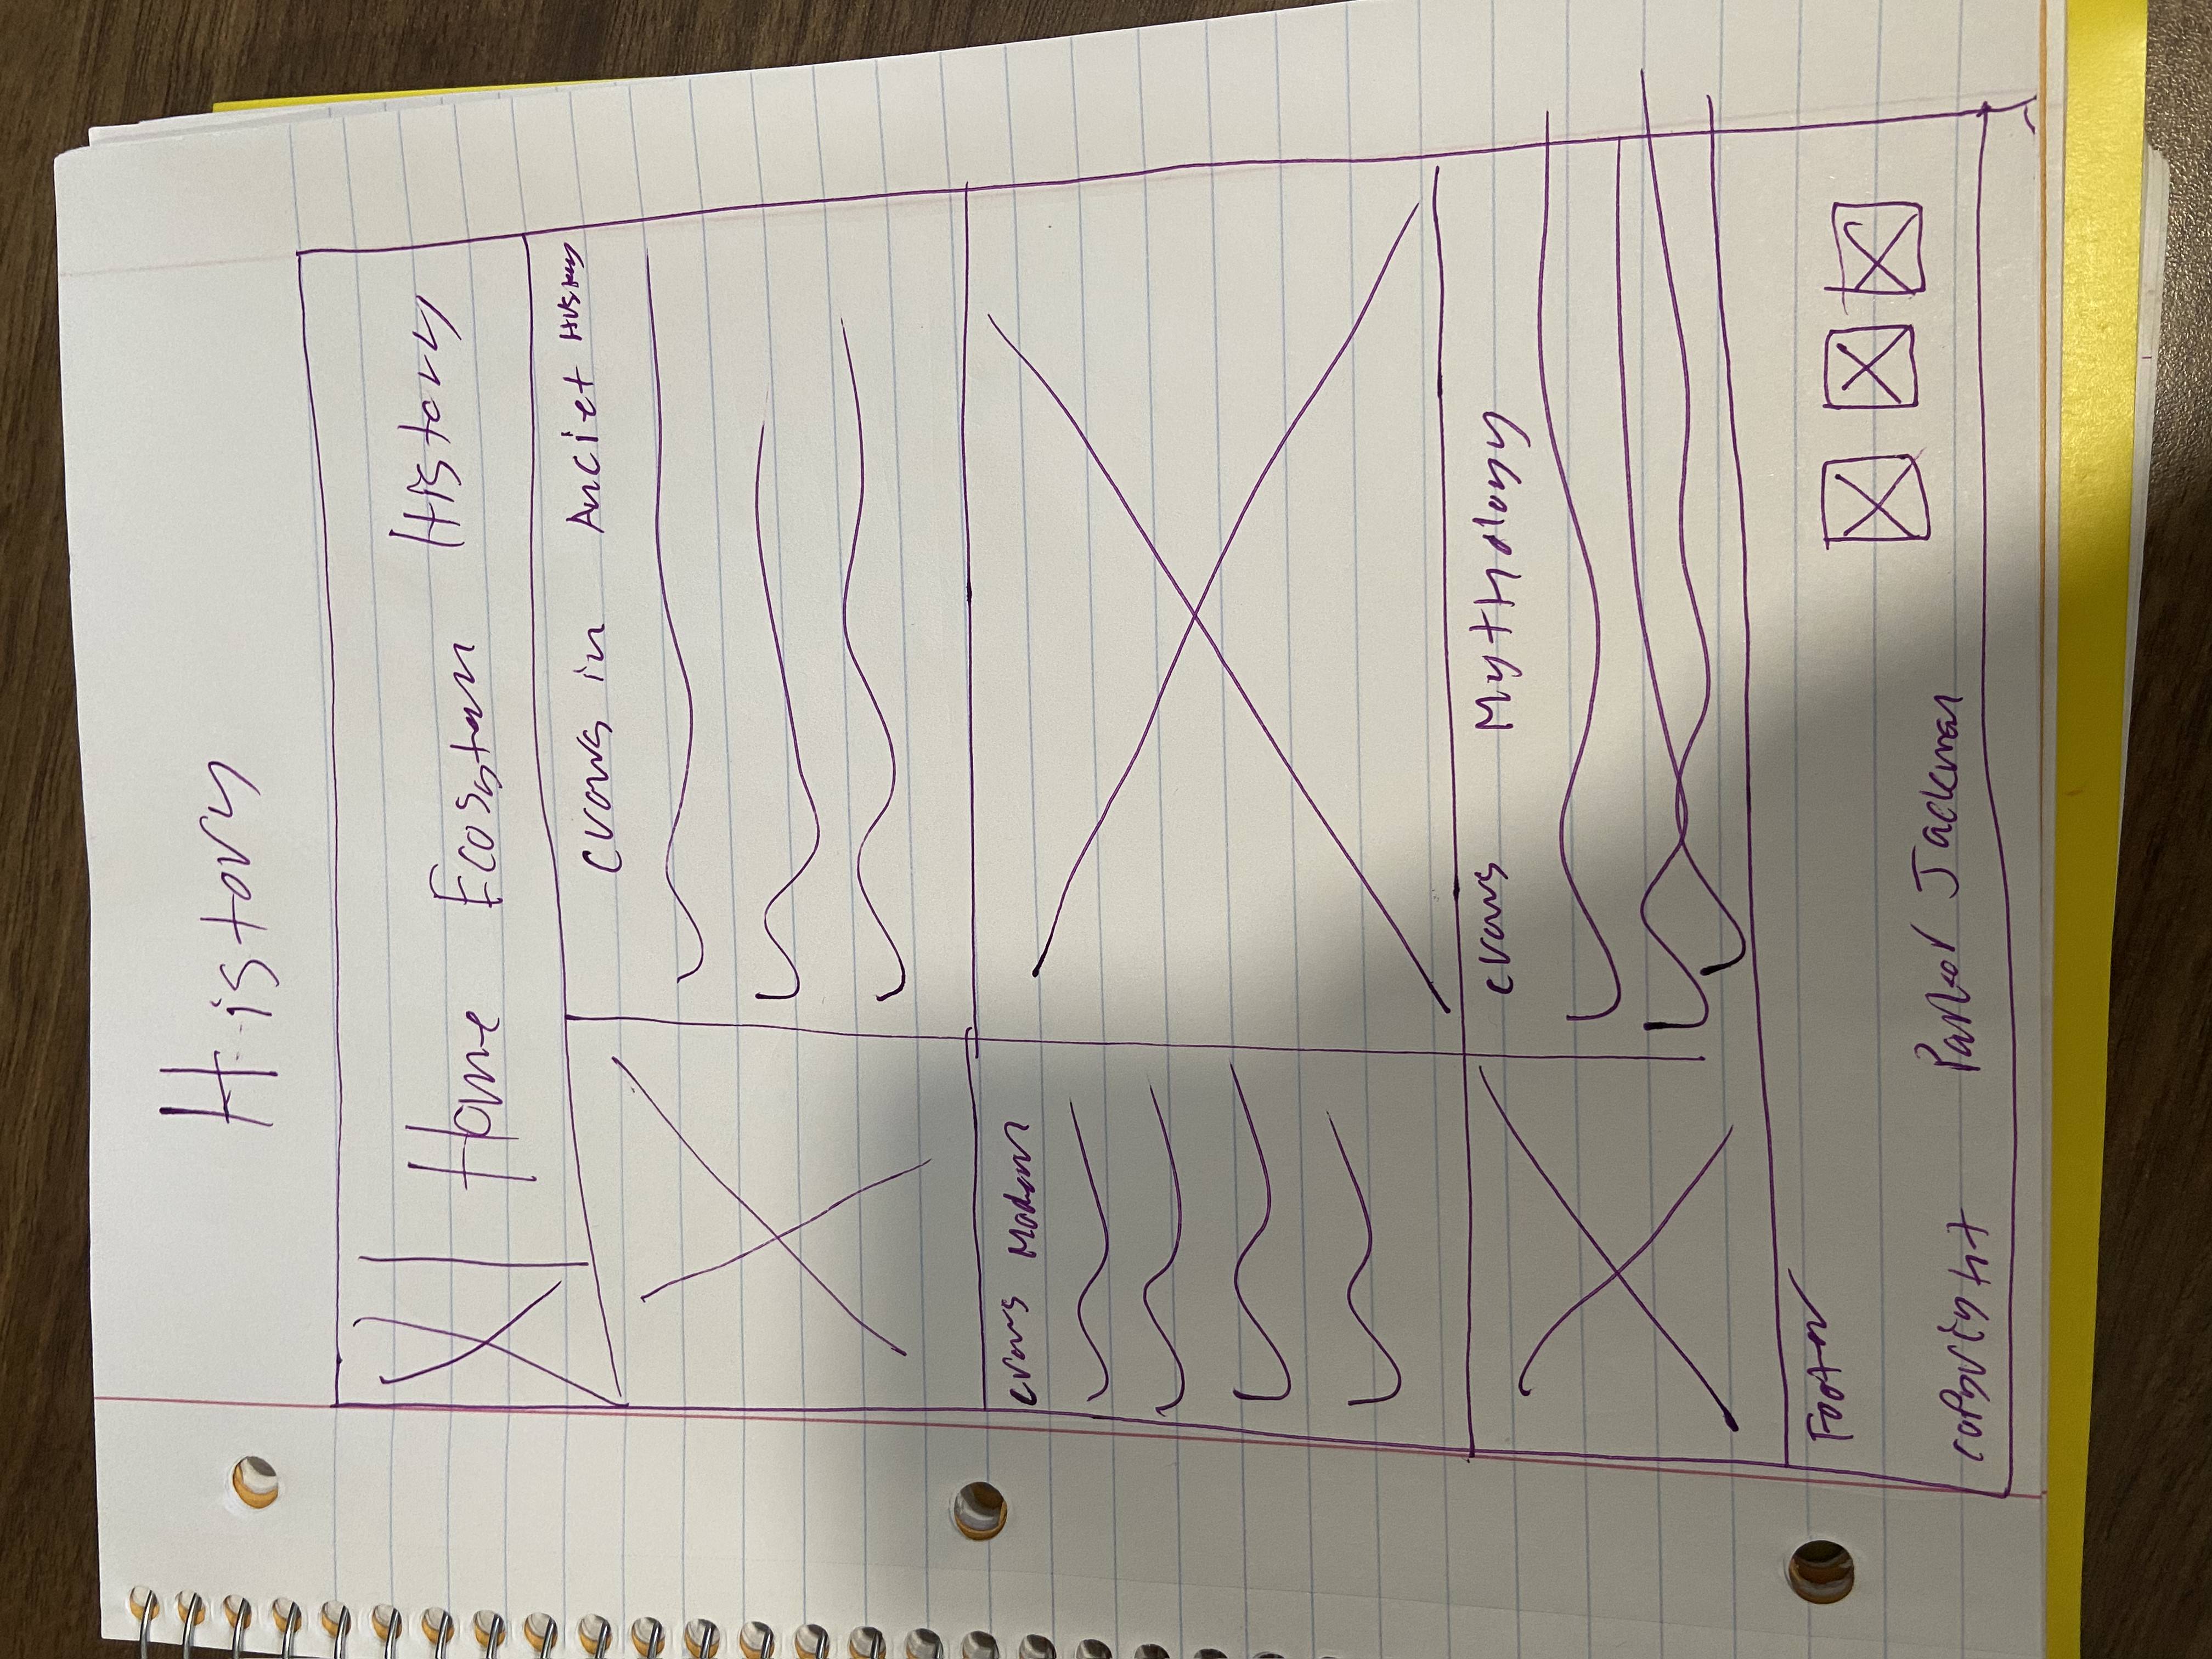 History
Home Ecosstem History
crows in Anciet History
crows Modern
crows Mythology
Footer
copyright Parker Jackman